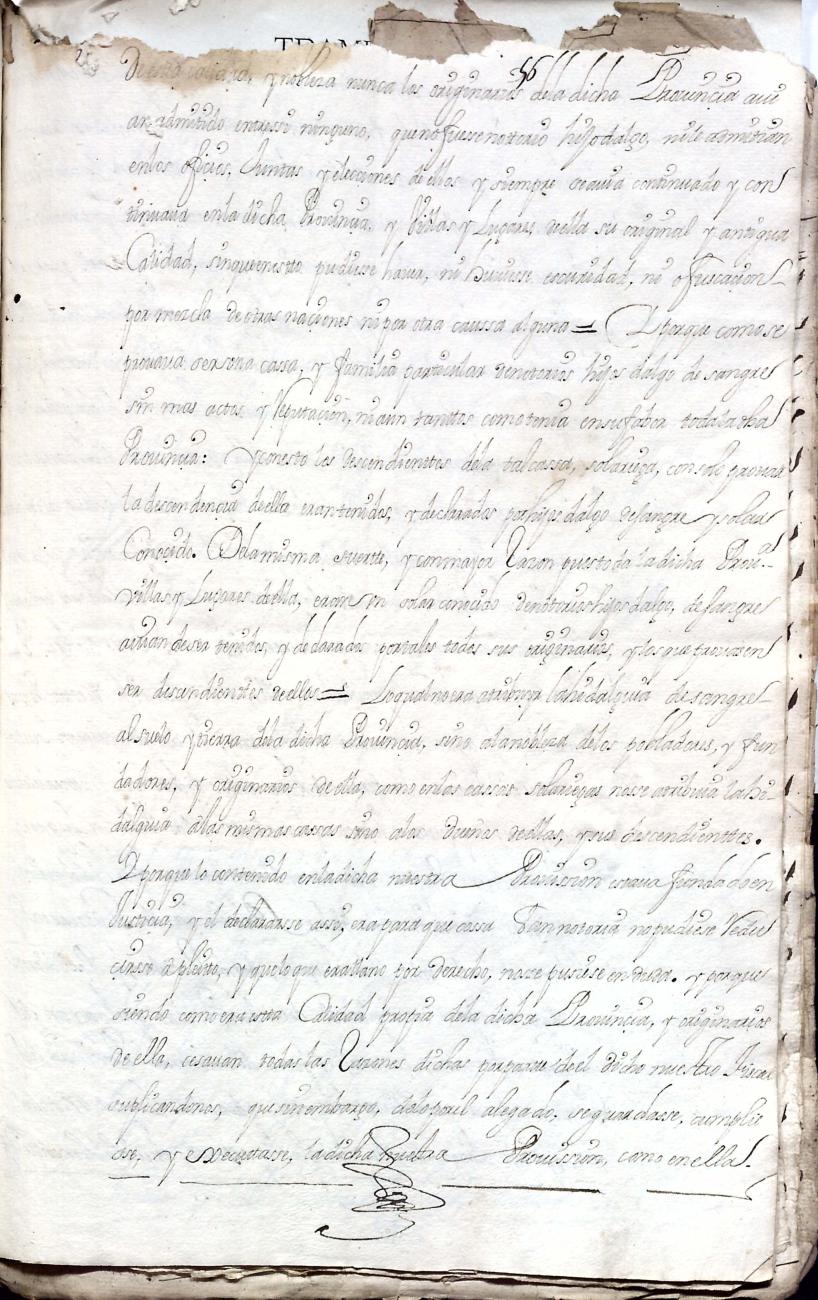 56
De esta calidad, y nobleza nunca los originarios dela dicha Provincia avi
an admitido entressi ninguno, que no fuesse notorio hijodalgo, ni le admitian
en los oficios, Juntas y elecciones de ellos y siempre se avia continuado y con
tinuava en la dicha Provincia, y Villas y Lugares de ella su original y antigua
Calidad, sin que en esto pudiesse haver, ni huviesse escuridad, ni ofuscacion
por mezcla de otras naciones ni por otra caussa alguna = Y porque como se
provava ser una cassa, y familia particular de notorios hijos dalgo de sangre
sin mas actos y Reputacion, ni aun tanttos como tenia en su fabor toda la dha
Provincia: y con esto los descendienttes dela tal cassa, solariega, con solo provar
la descendencia de ella eran tenidos, y declarados por hijos dalgo de sangre y solar
Conocido. De la misma suerte, y con mayor Razon pues toda la dicha Prov.a
villas y Lugares de ella, era un solar conocido de notorios hijos dalgo, de sangre
avian de ser tenidos, y declarados por tales todos sus originarios, y los que provasen
ser descendientes de ellos = Lo qual no era atribuyr la hidalguia de sangre
al suelo y tierra dela dicha Provincia, sino a la nobleza de los pobladores, y fun
dadores, y originarios de ella, como en las cassas solariegas no se atribuia la hi-
dalguia a las mismas cassas sino a los dueños de ellas, y sus descendienttes.
Y porque lo contenido en la dicha nuestra Provission estava fundado en
Justicia, y el declararsse assi, era para que cossa tan notoria no pudiese Redu
cirsse a pleito, y que lo que era llano por derecho, no se pusiese en duda. y porque
siendo como era esta Calidad propia dela dicha Provincia, y originarios
de ella, cesavan todas las Razones dichas por parte del dicho nuestro Fiscal
suplicandonos, que sin embargo, de lo por el alegado, se guardasse, cumplie
sse, y executasse, la dicha nuestra Provission, como en ella